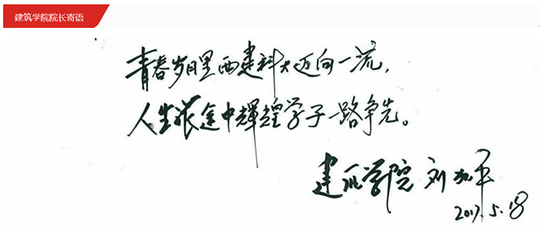 建筑学院院长寄语
青春岁月里西建科大迈向一流,
人生旅途中辉煌学子一路争先。
建筑学院 刘加平
2017.5.18